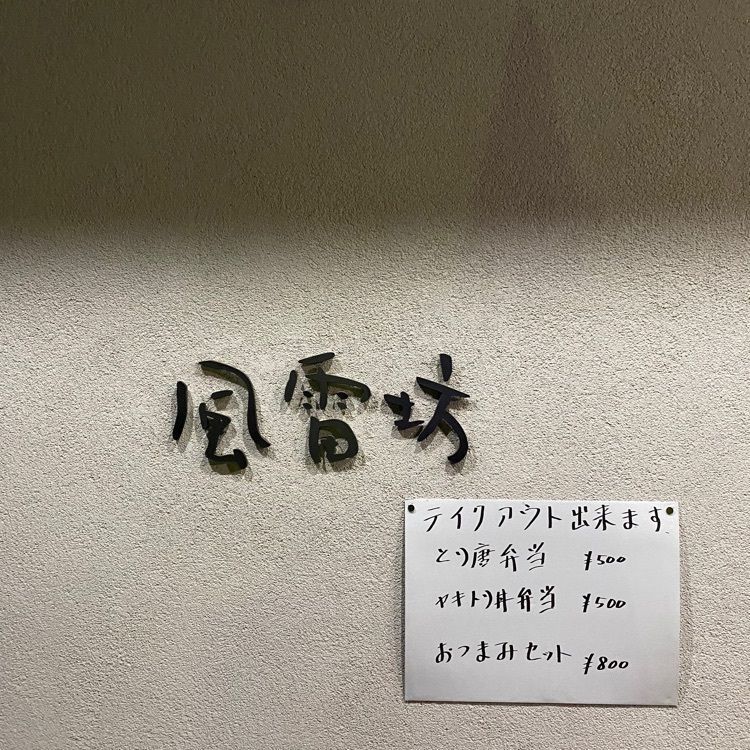 風雷坊
テイクアウト出来ます
とり唐弁当 ¥500
ヤキトリ丼弁当 ¥500
おつまみセット ¥800